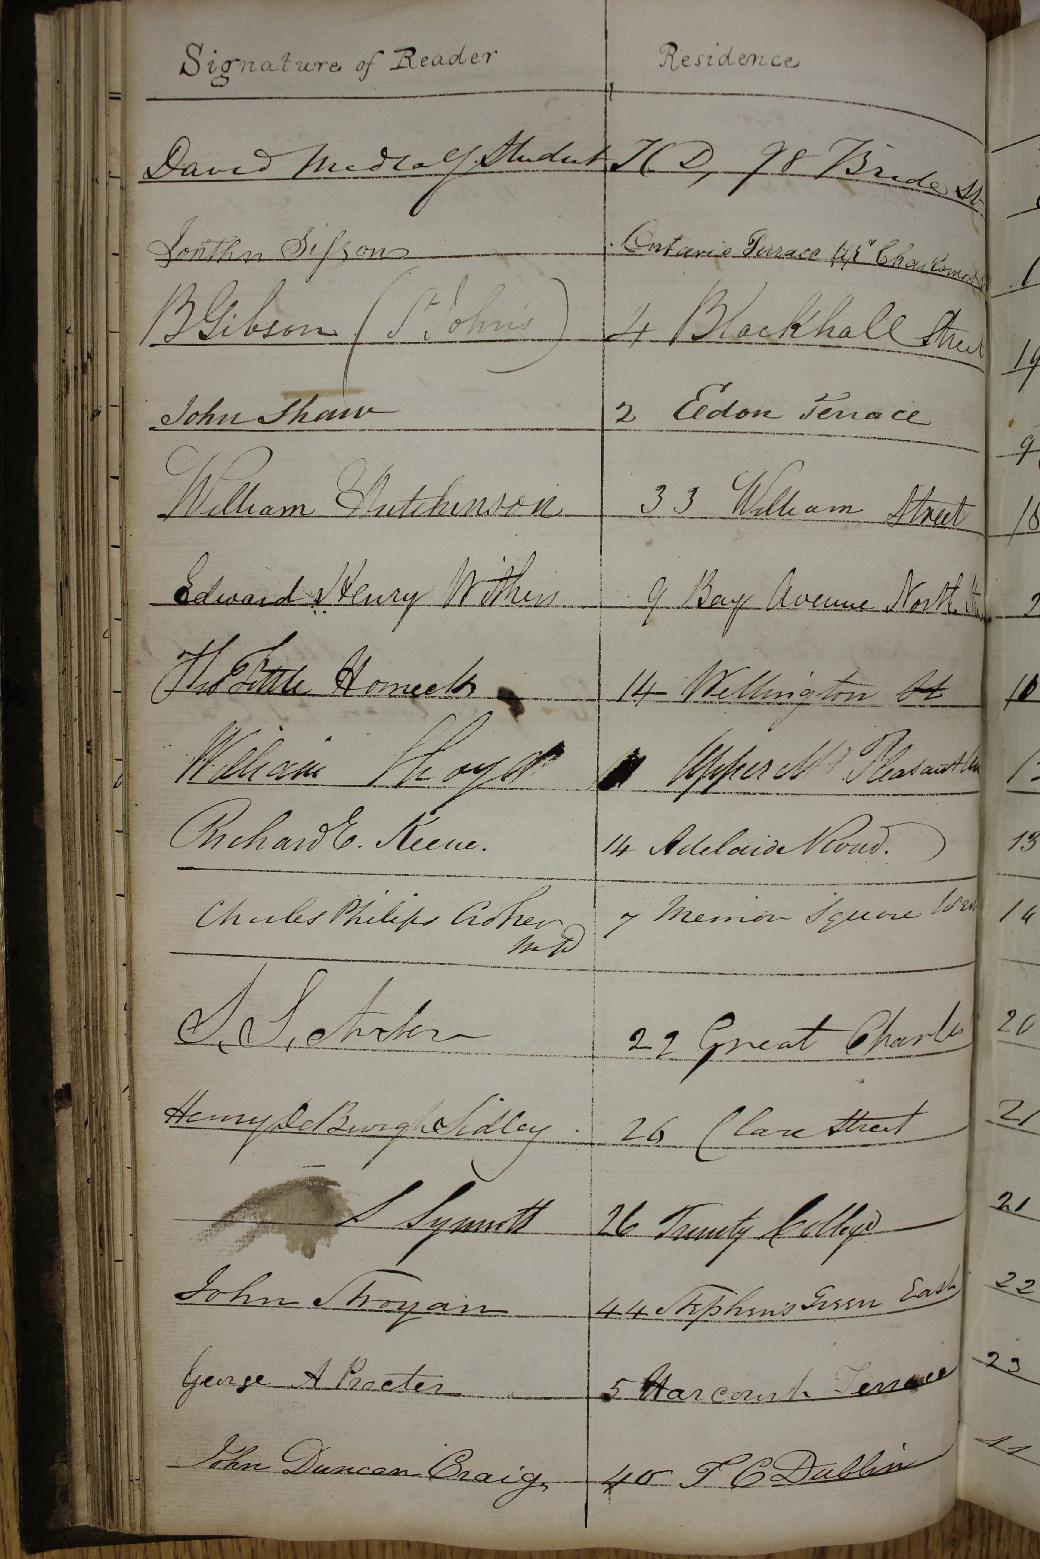 Signature of Reader Residence
David Medcalf Student T C D, 98 Bride St
Jonthn Sisson Ontario Terrace
B Gibson (St Johns) 4 Blackhall Street
John Shaw 2 Eldon Terrace
William Hutchinson 33 William Street
Edward Henry Withers 9 Bay Avenue North
14 Wellington St
William Lloyd Upper Mt Pleasant
Richard E. Keene. 14 Adelaide Road.
Charles Philips Croker 7 Merrion Square West
M D
22 Great Charles
Henry De Burgh Sidley 26 Clare Street
S Synnott 26 Trinity College
John Troyan 44 Stephens Green East
George A Procter 5 Harcourt Terrace
John Duncan Craig, 40 T C Dublin